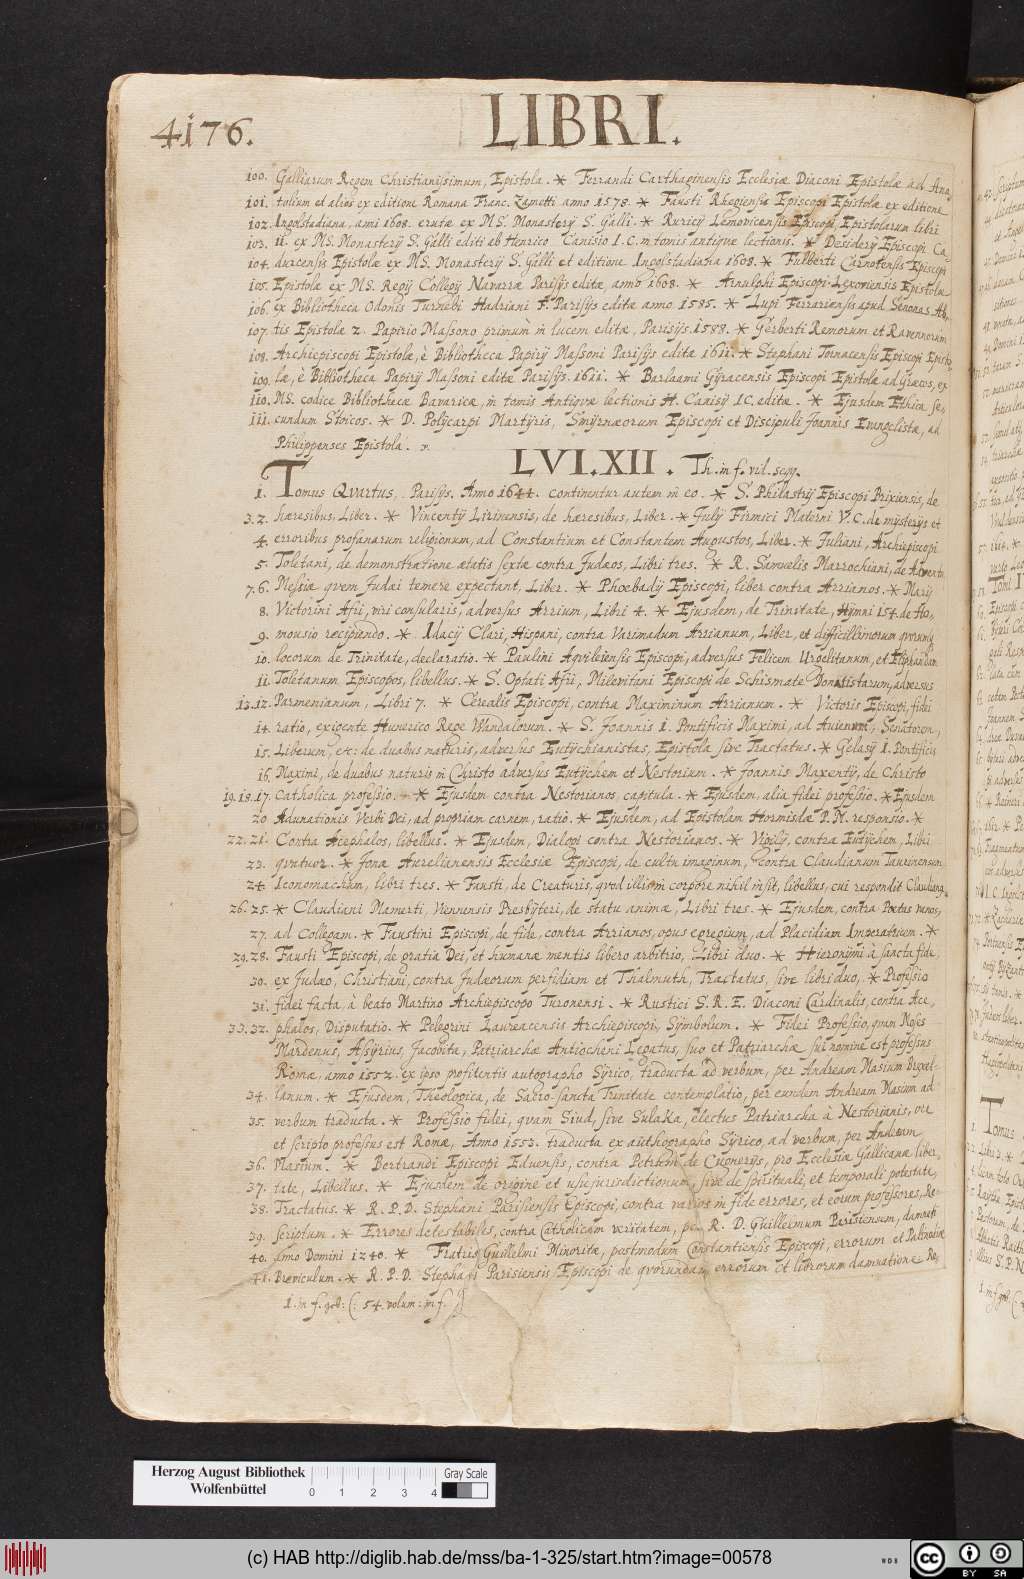 4176. LIBRI.
100. Galliarum Regem Christianissimum, Epistola. * Ferrandi Carthaginensis Ecclesiæ Diaconi Epistolæ ad Ana,
101. tolium et alios ex editione Romana Franc. Zanetti anno 1578. * Fausti Rhegiensis Episcopi Epistolæ ex editione
102. Ingolstadiana, anni 1608. erutæ ex MS. Monasterÿ S. Galli. * Ruricÿ Lemovicensis Episcopi Epistolarum libri
103. ii. ex MS. Monasterÿ S. Galli editi ab Henrico Canisio I.C. in tomis antiquæ lectionis. * Desiderÿ Episcopi Ca,
104. durcensis Epistolæ ex MS. Monasterÿ S. Galli et editione Ingolstadiana 1608. * Fulberti Carnotensis Episcopi
105. Epistolæ ex MS. Regÿ Collegÿ Navarræ Parisÿs editæ, anno 1608. * Arnulphi Episcopi Lexoviensis Epistolæ
106. ex Bibliotheca Odonis Turnebi Hadriani F. Parisÿs editæ anno 1585. * Lupi Ferrariensis apud Senonas Ab,
107. tis Epistolæ z. Papirio Massono primum in lucem editæ, Parisÿs 1588. * Gerberti Remorum et Ravennorum
108. Archiepiscopi Epistolæ, è Bibliotheca Papirÿ Massoni Parisÿs editæ 1611. * Stephani Tornacensis Episcopi Episto,
109. læ, è Bibliotheca Papirÿ Massoni editæ Parisÿs. 1611. * Barlaami Gÿracensis Episcopi Epistolæ ad Græcos, ex
110. MS. codice Bibliothecæ Bavaricæ, in tomis Antiquæ lectionis H. Canisÿ IC. editæ. * Ejusdem Ethica se,
111. cundum Stoicos. * D. Polÿcarpi Martÿris, Smÿrnæorum Episcopi et Discipuli Joannis Evangelistæ, ad
Philippenses Epistola.
LVI.XII. Th. in f. vil. scqq.
1. Tomus Qvartus, Parisÿs. Anno 1644. continentur autem in eo. * S. Philastrÿ Episcopi Brixiensis, de
3.2. hæresibus, Liber. * Vincentÿ Lirinensis, de hæresibus, Liber. * Julÿ Firmici Materni V.C. de mÿsterÿs et
4. erroribus profanarum religionum, ad Constantium et Constantem Augustos, Liber. * Juliani, Archiepiscopi
5. Toletani, de demonstratione ætatis sextæ contra Judæos, Libri tres. * R. Samuelis Marrochiani, de Adventu
7.6. Messiæ qvem Judæi temere expectant, Liber. * Phoebadÿ Episcopi, liber contra Arrianos. * Marÿ
8. Victorini Afri, viri consularis, adversus Arrium, Libri 4. * Ejusdem, de Trinitate, Hÿmni 154. de Ho,
9. mousio recipiendo. * Idacÿ Clari, Hispani, contra Varimadum Arrianum, Liber, et difficillimorum qvorumq
10. locorum de Trinitate, declaratio. * Paulini Aqvileiensis Episcopi, adversus Felicem Urgelitanum, et Eliphandum
11. Toletanum Episcopos, libellus. * S. Optati Afri, Milevitani Episcopi de Schismate Donatistarum, adversus
13.12. Parmenianum, Libri 7. * Cerealis Episcopi, contra Maximinum Arrianum. * Victoris Episcopi, fidei
14. ratio, exigente Hunerico Rege Wandalorum. * S. Joannis I. Pontificis Maximi, ad Avienum, Senatorem,
15. Liberum, etc: de duabus naturis, adversus Eutÿchianistas, Epistola sive Tractatus. * Gelasÿ I. Pontificis
16. Maximi, de duabus naturis in Christo adversus Eutÿchem et Nestorium. * Joannis Maxentÿ, de Christo
19.18.17. catholica professio. * Ejusdem contra Nestorianos, capitula. * Ejusdem, alia fidei professio. * Ejusdem
20 Adunationis Verbi Dei, ad propriam carnem, ratio. * Ejusdem, ad Epistolam Hormisdæ P.M. responsio. *
22.21. Contra Acephalos, libellus. * Ejusdem, Dialogi contra Nestorianos. * Vigilÿ, contra Eutÿchem, Libri
23. qvatuor. * Jonæ Aurelianensis Ecclesiæ Episcopi, de cultu imaginum, contra Claudianum Taurinensem
24. Iconomachum, libri tres. * Fausti, de Creaturis, qvod illis in corpore nihil insit, libellus, cui respondit Claudianq
26.25. * Claudiani Mamerti, Viennensis Presbÿteri, de statu animæ, Libri tres. * Ejusdem, contra Poetus vanos,
27. ad Collegam. * Faustini Episcopi, de fide, contra Arrianos, opus egregium, ad Placidiam Imperatricem. *
29.28. Fausti Episcopi, de gratia Dei, et humanæ mentis libero arbitrio, Libri duo. * Hieronÿmi à sancta fide,
30. ex Judæo, Christiani, contra Judæorum perfidiam et Thalmuth, Tractatus, sive libri duo, * Professio
31. fidei facta, à beato Martino Archiepiscopo Turonensi. * Rustici S.R.E. Diaconi Cardinalis, contra Ace,
33.32. phalos, Disputatio. * Pelegrini Laureacensis Archiepiscopi, Sÿmbolum. * Fidei Professio, qvam Moses
Mardenus, Assÿrius, Jacobita, Patriarchæ Antiocheni Legatus, suo et Patriarchæ sui nomine est professus
Romæ, anno 1552. ex ipso profitentis autographo Sÿrico, traducta ad verbum, per Andream Masium Bruxel-
34. lanum. * Ejusdem, Theologica, de Sacro-sancta Trinitate contemplatio, per eundem Andream Masium ad
35. verbum traducta. * Professio fidei, qvam Siud, sive Sulaka, electus Patriarcha à Nestorianis, ore
et scripto professus est Romæ, Anno 1553. traducta ex authographo Sÿrico, ad verbum, per Andream
36. Masium. * Bertrandi Episcopi Eduensis, contra Petrum de Cugnerÿs, pro Ecclesiæ Gallicanæ liber,
37. tate, Libellus. * Ejusdem de origine et usu jurisdictionum, sive de spirituali, et temporali potestate,
38. Tractatus. * R.P.D. Stephani Parisiensis Episcopi, contra varios in fide errores, et eorum professores, Re-
39. scriptum. * Errores detestabiles, contra Catholicam veritatem, per R. D. Guillermum Parisiensem, damnati
40. anno Domini 1240. * Fratris Guillelmi Minoritæ, postmodum Constantiensis Episcopi, errorum et Palinodiæ
41. Breviculum. * R.P.D. Stephani Parisiensis Episcopi de qvorundam errorum et librorum damnatione Re,
1. in f. geb: (: 54. volum: in f.
Herzog August Bibliothek
Wolfenbüttel
0 1 2 3 4
Gray Scale
(c) HAB http://diglib.hab.de/mss/ba-1-325/start.htm?image=00578
WDB
cc BY SA